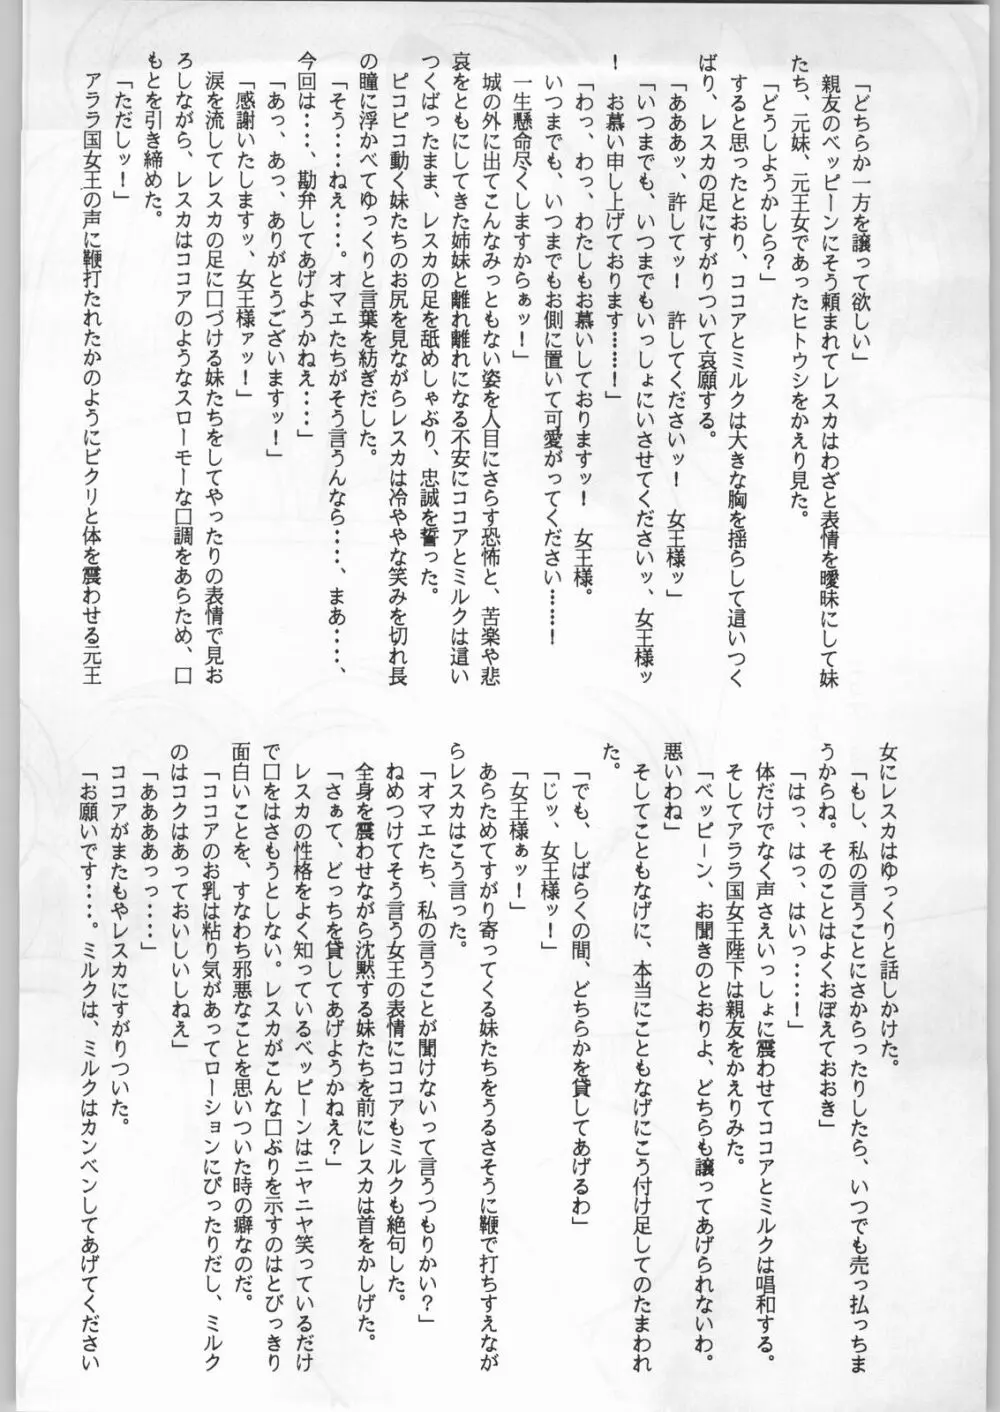 「どちらか一方を譲って欲しい」
親友のベッピーンにそう頼まれてレスカはわざと表情を曖昧にして妹
たち、元妹、元王女であったヒトウシをかえり見た。
「どうしようかしら？」
すると思ったとおり、ココアとミルクは大きな胸を揺らして這いつく
ばり、レスカの足にすがりついて哀願する。
「あああッ、許してッ！　許してくださいッ！　女王様ッ」
「いつまでも、いつまでもいっしょにいさせてくださいッ、女王様ッ
！　お慕い申し上げております……！」
「わっ、わっ、わたしもお慕いしておりますッ！　女王様。
いつまでも、いつまでもお側に置いて可愛がってください………！
一生懸命尽くしますからぁッ！」
城の外に出てこんなみっともない姿を人目にさらす恐怖と、苦楽や悲
哀をともにしてきた姉妹と離れ離れになる不安にココアとミルクは這い
つくばったまま、レスカの足を舐めしゃぶり、忠誠を誓った。
ピコピコ動く妹たちのお尻を見ながらレスカは冷ややかな笑みを切れ長
の瞳に浮かべてゆっくりと言葉を紡ぎだした。
「そう‥‥ねえ‥‥。オマエたちがそう言うんなら‥‥、まあ‥‥、
今回は‥‥、勘弁してあげようかねえ‥‥」
「あっ、あっ、ありがとうございますッ！」
「感謝いたしますッ、女王様ァッ！」
涙を流してレスカの足に口づける妹たちをしてやったりの表情で見お
ろしながら、レスカはココアのようなスローモーな口調をあらため、口
もとを引き締めた。
「ただしッ！」
アララ国女王の声に鞭打たれたかのようにビクリと体を震わせる元王
女にレスカはゆっくりと話しかけた。
「もし、私の言うことにさからったりしたら、いつでも売っ払っちま
うからね。そのことはよくおぼえておおき」
「はっ、はっ、はいっ‥‥！」
体だけでなく声さえいっしょに震わせてココアとミルクは唱和する。
そしてアララ国女王陛下は親友をかえりみた。
「ベッピーン、お聞きのとおりよ、どちらも譲ってあげられないわ。
悪いわね」
そしてこともなげに、本当にこともなげにこう付け足してのたまわれ
た。
「でも、しばらくの間、どちらかを貸してあげるわ」
「じッ、女王様ッ！」
「女王様ぁッ！」
あらためてすがり寄ってくる妹たちをうるさそうに鞭で打ちすえなが
らレスカはこう言った。
「オマエたち、私の言うことが聞けないって言うつもりかい？」
ねめつけてそう言う女王の表情にココアもミルクも絶句した。
全身を震わせながら沈黙する妹たちを前にレスカは首をかしげた。
「さぁて、どっちを貸してあげようかねえ？」
レスカの性格をよく知っているベッピーンはニヤニヤ笑っているだけ
で口をはさもうとしない。レスカがこんな口ぶりを示すのはとびっきり
面白いことを、すなわち邪悪なことを思いついた時の癖なのだ。
「ココアのお乳は粘り気があってローションにぴったりだし、ミルク
のはコクはあっておいしいしねえ」
「ああああっっ‥‥」
ココアがまたもやレスカにすがりついた。
「お願いです‥‥。ミルクは、ミルクはカンベンしてあげてください